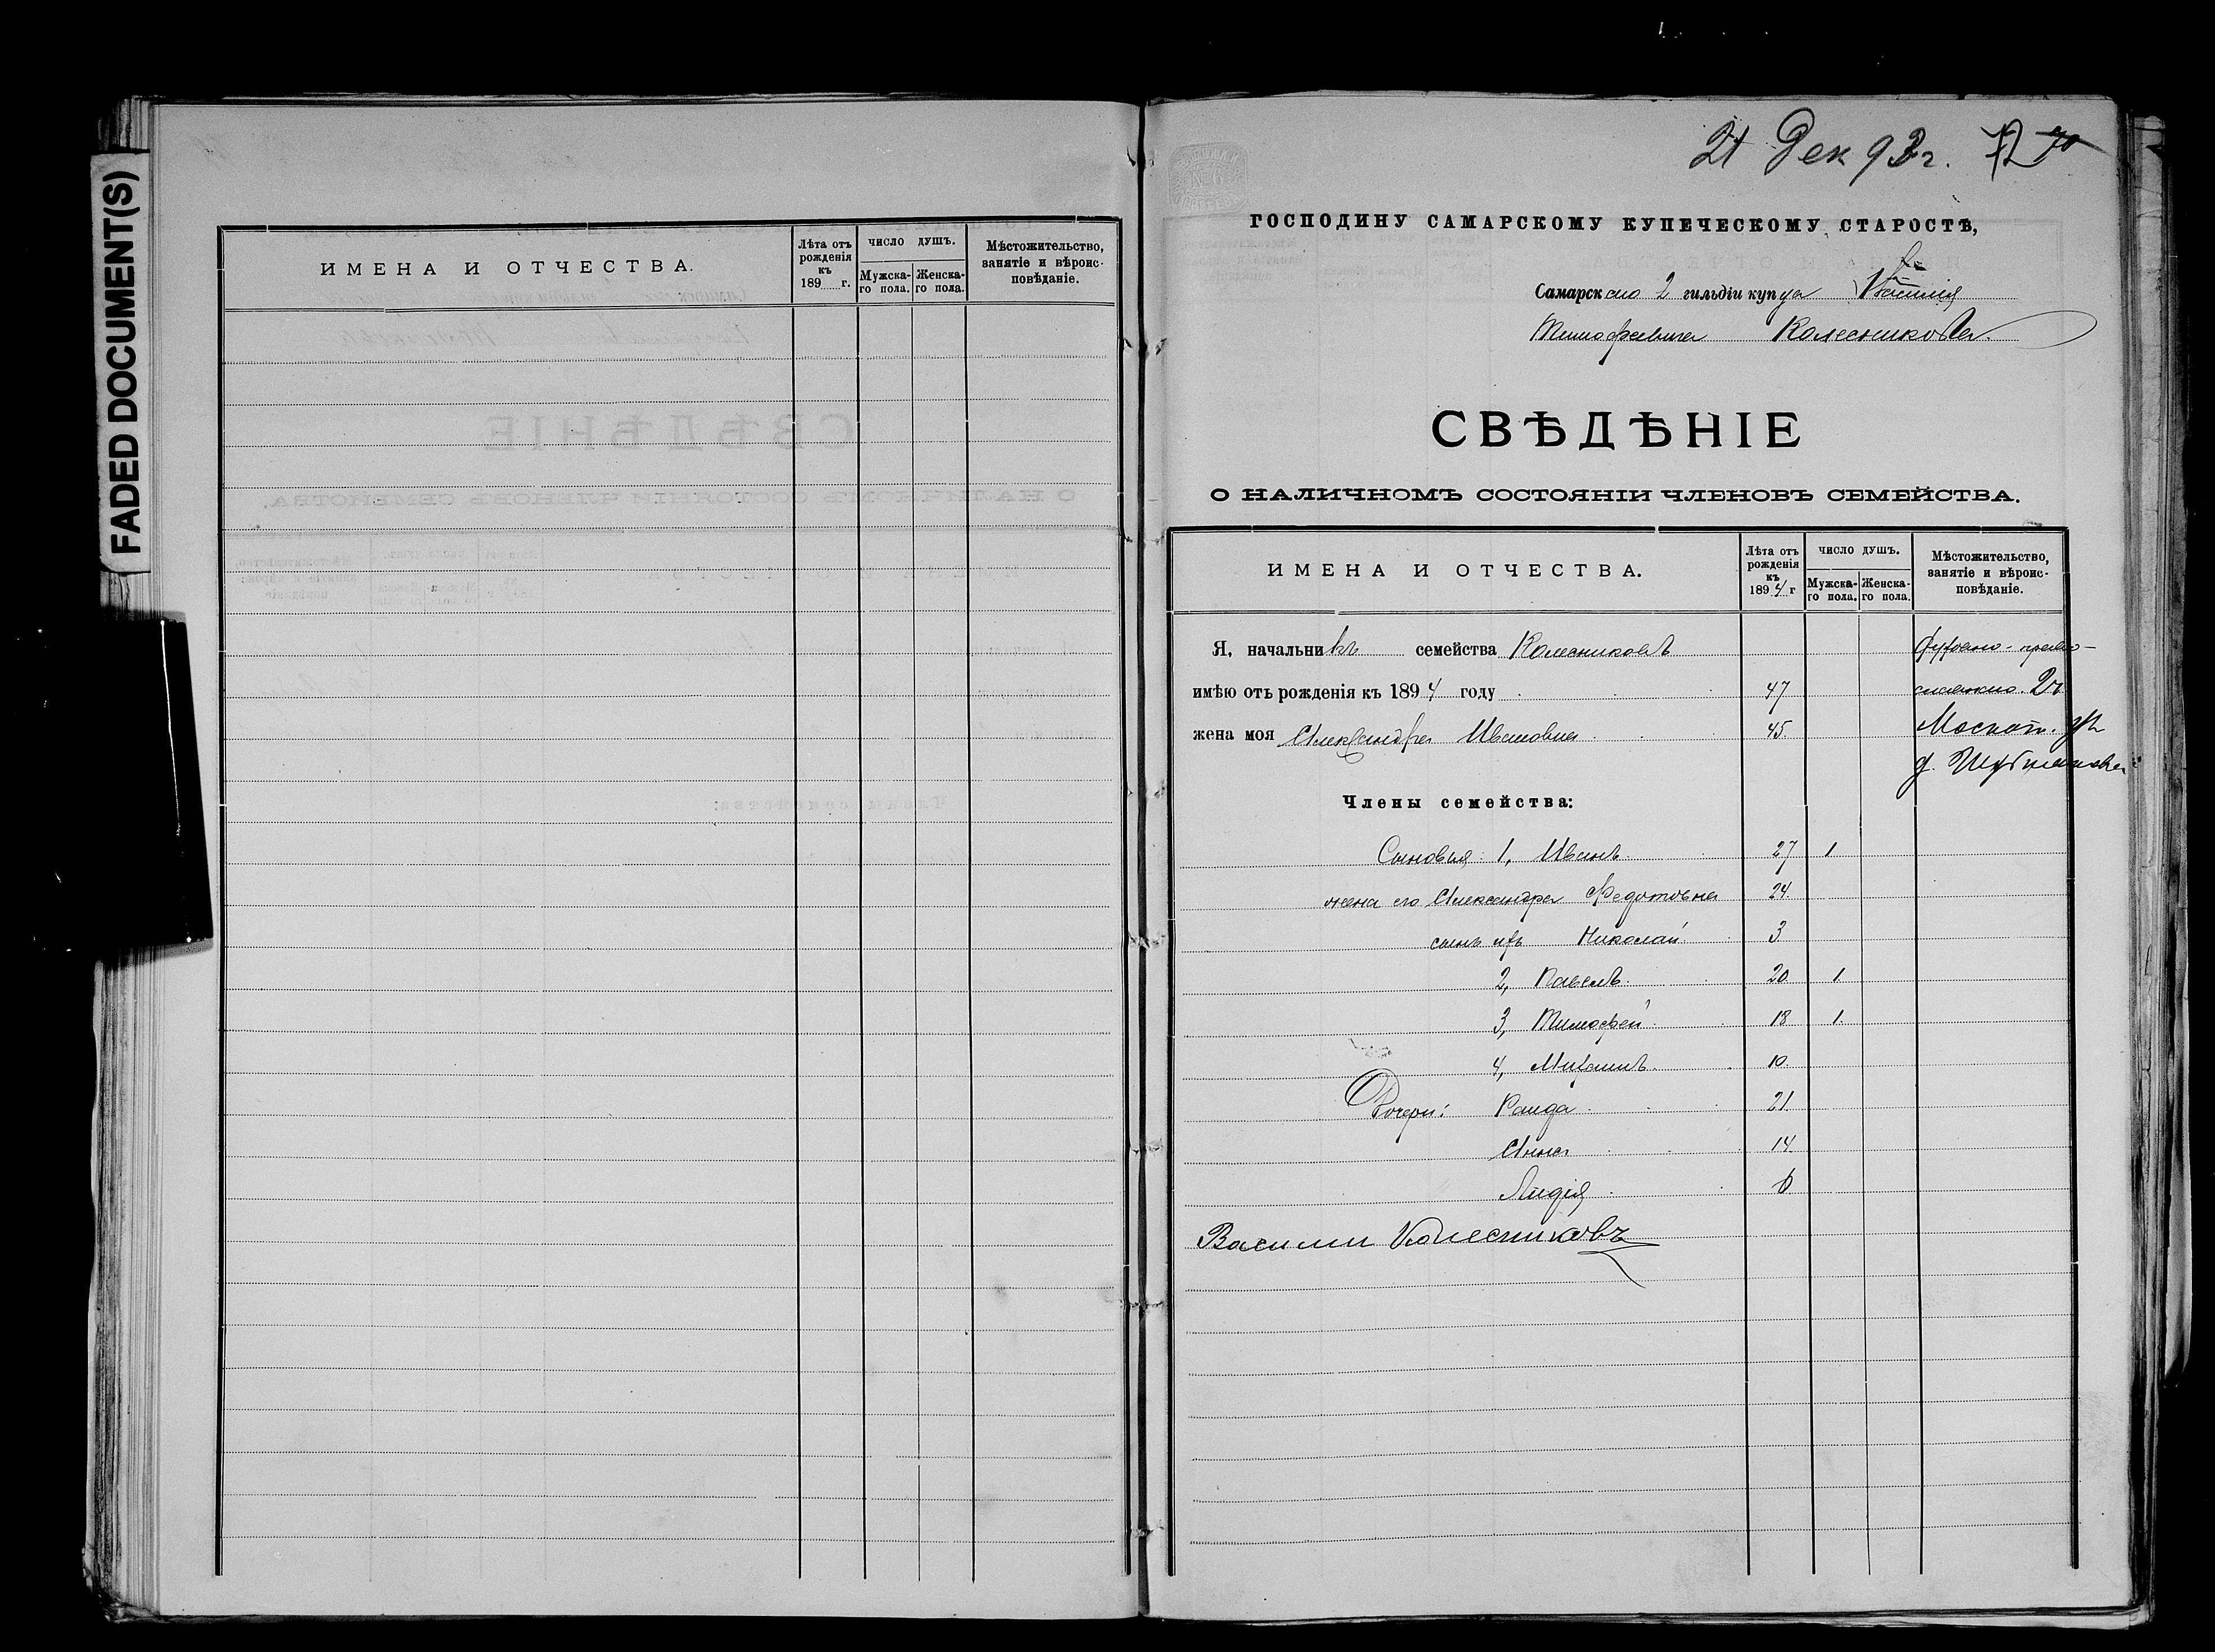 FADED DOCUMENT(S)
ИМЕНА И ОТЧЕСТВА.
Лѣта отъ рожденія къ 189 г.
ЧИСЛО ДУШЪ.
Мужска-го пола.
Женска-го пола.
Мѣстожительство, занятіе и вѣроис-повѣданіе.
21 Дек 93 г. 72 70
ГОСПОДИНУ САМАРСКОМУ КУПЕЧЕСКОМУ СТАРОСТѢ,
Самарскаго 2 гильдіи купца Василія
Тимофеевича Колесникова.
СВѢДѢНІЕ
О НАЛИЧНОМЪ СОСТОЯНІИ ЧЛЕНОВЪ СЕМЕЙСТВА.
ИМЕНА И ОТЧЕСТВА.
Лѣта отъ рожденія къ 1894 г
ЧИСЛО ДУШЪ.
Мужска-го пола.
Женска-го пола.
Мѣстожительство, занятіе и вѣроис-повѣданіе.
Я, начальникъ семейства Колесниковъ
имѣю отъ рожденія къ 1894 году 47 2 ч
жена моя Александра Ивановна 45. Москат.
Члены семейства:
Сыновья: 1, Иванъ. 27 1
жена его Александра Федотовна 24.
сынъ ихъ Николай. 3
2, Павелъ. 20 1
3, Тимофей. 18 1.
4, Михаилъ. 10.
Дочери: Раида 21.
Анна 14.
Лидія 6
Василий Колесниковъ